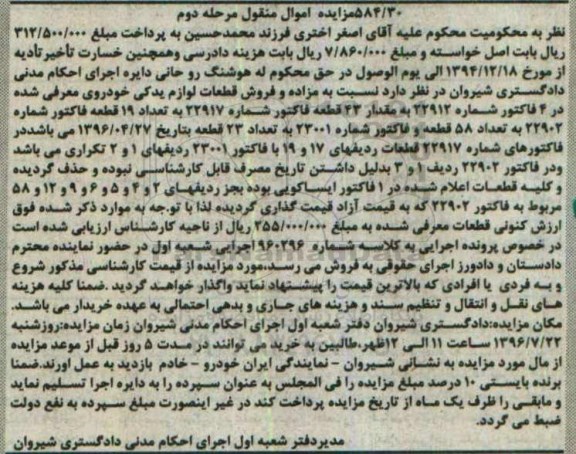 ۵۸۴/۳۰مزایده اموال منقول مرحله دوم
نظر به محکومیت محکوم علیه آقای اصغر اختری فرزند محمدحسین به پرداخت مبلغ ۳۱۲/۵۰۰/۰۰۰
ریال بابت اصل خواسته و مبلغ ۷/۸۶۰/۰۰۰ ریال بابت هزینه دادرسی وهمچنین خسارت تأخیرتأدیه
از مورخ ۱۳۹۴/۱۲/۱۸ الی یوم الوصول در حق محکوم له هوشنگ رو حانی دایره اجرای احکام مدنی
دادگستری شیروان در نظر دارد نسبت به مزاده و فروش قطعات لوازم یدکی خودروی معرفی شده
در ۴ فاکتور شماره ۲۲۹۱۲ به مقدار ۳۳ قطعه فاکتور شماره ۲۲۹۱۷ به تعداد ۱۹ قطعه فاکتور شماره
۲۲۹۰۲ به تعداد ۵۸ قطعه و فاکتور شماره ۲۳۰۰۱ به تعداد ۲۳ قطعه بتاریخ ۱۳۹۶/۰۴/۲۷ می باشددر
فاکتورهای شماره ۲۲۹۱۷ قطعات ردیفهای ۱۷ و ۱۹ با فاکتور ۲۳۰۰۱ ردیفهای ۱ و ۲ تکراری می باشد
ودر فاکتور ۲۲۹۰۲ ردیف ۱ و ۳ بدلیل داشتن تاریخ مصرف قابل کارشناسی نبوده و حذف گردیده
و کلیه قطعات اعلام شده در ۱ فاکتور ایساکویی بوده بجز ردیفهای ۲ و ۴ و ۵ و ۶ و ۹ و ۱۲ و ۵۸
مربوط به فاکتور ۲۲۹۰۲ که به قیمت آزاد قیمت گذاری گردیده لذا با تو.جه به موارد ذکر شده فوق
ارزش کنونی قطعات معرفی شده به مبلغ ۳۵۵/۰۰۰/۰۰۰ ریال از ناحیه کارشناس ارزیابی شده است
در خصوص پرونده اجرایی به کلاسه شماره ۹۶۰۲۹۶ اجرایی شعبه اول در حضور نماینده محترم
دادستان و دادورز اجرای حقوقی به فروش می رسد.مورد مزایده از قیمت کارشناسی مذکور شروع
و به فردی یا افرادی که بالاترین قیمت را پیشنهاد نماید واگذار خواهد گردید .ضمنا کلیه هزینه
های نقل و انتقال و تنظیم سند و هزینه های جاری و بدهی احتمالی به عهده خریدار می باشد.
مکان مزایده:دادگستری شیروان دفتر شعبه اول اجرای احکام مدنی شیروان زمان مزایده:روزشنبه
۱۳۹۶/۷/۲۲ ساعت ۱۱ الی ۱۲ظهر،طالبین به خرید می توانند در مدت ۵ روز قبل از موعد مزایده
از مال مورد مزایده به نشانی شیروان - نمایندگی ایران خودرو - خادم بازدید به عمل اورند.ضمنا
برنده بایستی ۱۰ درصد مبلغ مزایده را فی المجلس به عنوان سپرده را به دایره اجرا تسلیم نماید
و مابقی را ظرف یک ماه از تاریخ مزایده پرداخت کند در غیر اینصورت مبلغ سپرده به نفع دولت
ضبط می گردد.
مدیردفتر شعبه اول اجرای احکام مدنی دادگستری شیروان